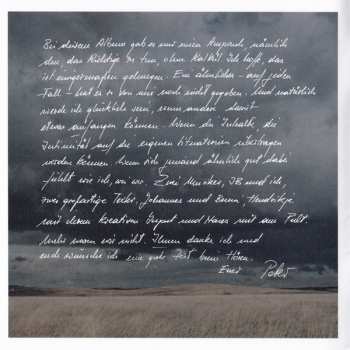 Bei diesem Album gab es nur einen Anspruch, nämlich
den, das Richtige zu tun, ohne Kalkül. Ich hoffe, das
ist einigermaßen gelungen. Ein ähnliches - auf jeden
Fall - hat es von mir noch nicht gegeben. Und natürlich
werde ich glücklich sein, wenn andere damit
etwas anfangen können. Wenn die Inhalte, die
Intimität auf die eigenen Situationen übertragen
werden können. Wenn sich jemand ähnlich gut dabei
fühlt wie ich, wie wir. Zwei Musiker, JB und ich,
zwei großartige Texter, Johannes und
mit deren kreativen Input und am Pult.
Mehr waren wir nicht. Ihnen danke ich und
euch wünsche ich eine gute Zeit beim Hören.
Euer Peter